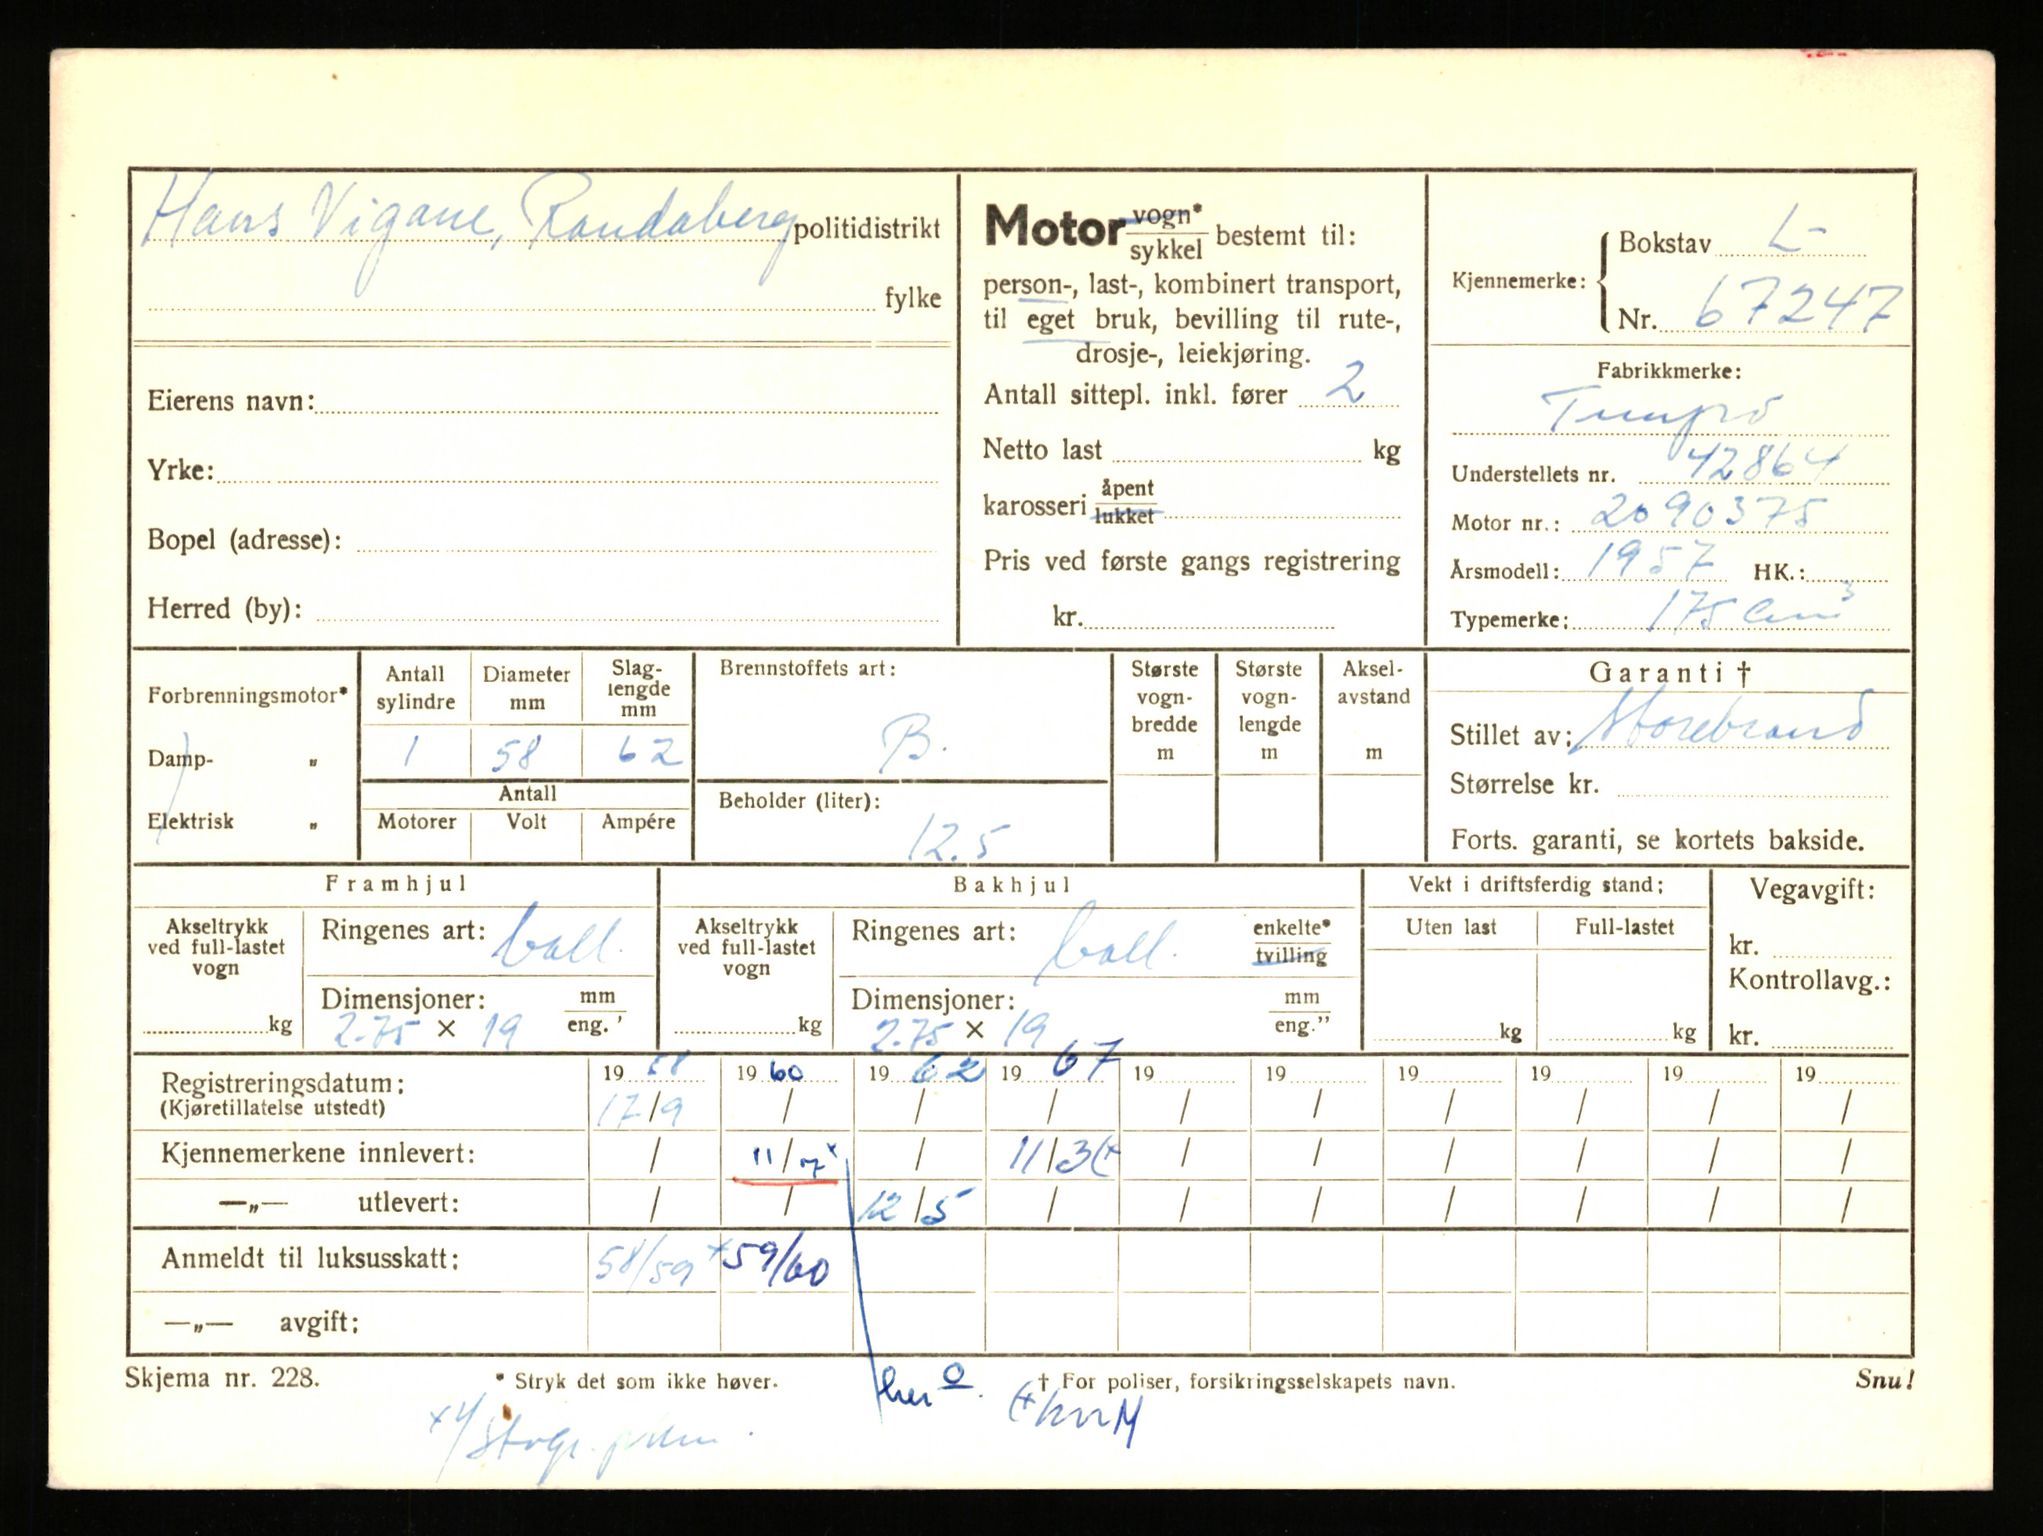 Hans Vigane, Randaberg politidistrikt
fylke
Eierens navn:
Yrke:
Bopel (adresse):
Herred (by):
Motor vogn* / sykkel bestemt til:
person-, last-, kombinert transport,
til eget bruk, bevilling til rute-,
drosje-, leiekjøring.
Antall sittepl. inkl. fører 2
Netto last kg
karosseri åpent / lukket
Pris ved første gangs registrering
kr.
Kjennemerke: Bokstav L-
Nr. 67247
Fabrikkmerke:
Tempo
Understellets nr. 42864
Motor nr.: 2090375
Årsmodell: 1957 HK.:
Typemerke: 175 cm³
Forbrenningsmotor*
Damp- „
Elektrisk „
Antall sylindre 1
Diameter mm 58
Slaglengde mm 62
Antall
Motorer Volt Ampére
Brennstoffets art:
B.
Beholder (liter):
12.5
Største vognbredde m
Største vognlengde m
Akselavstand m
Garanti †
Stillet av: Storebrand
Størrelse kr.
Forts. garanti, se kortets bakside.
Framhjul
Akseltrykk ved full-lastet vogn kg
Ringenes art: ball.
Dimensjoner: mm / eng.'
2.75 × 19
Bakhjul
Akseltrykk ved full-lastet vogn kg
Ringenes art: ball. enkelte* / tvilling
Dimensjoner: mm / eng."
2.75 × 19
Vekt i driftsferdig stand:
Uten last Full-lastet
kg kg
Vegavgift:
kr.
Kontrollavg.:
kr.
Registreringsdatum: 1958 1960 1962 1967 19 19 19 19 19 19
(Kjøretillatelse utstedt) 17/9 / / / / / / / / /
Kjennemerkene innlevert: / 11/7x / 11/3(+ / / / / / /
—„— utlevert: / / 12/5 / / / / / / /
Anmeldt til luksusskatt: 58/59 + 59/60
—„— avgift:
Skjema nr. 228. * Stryk det som ikke høver. her 0. † For poliser, forsikringsselskapets navn. Snu!